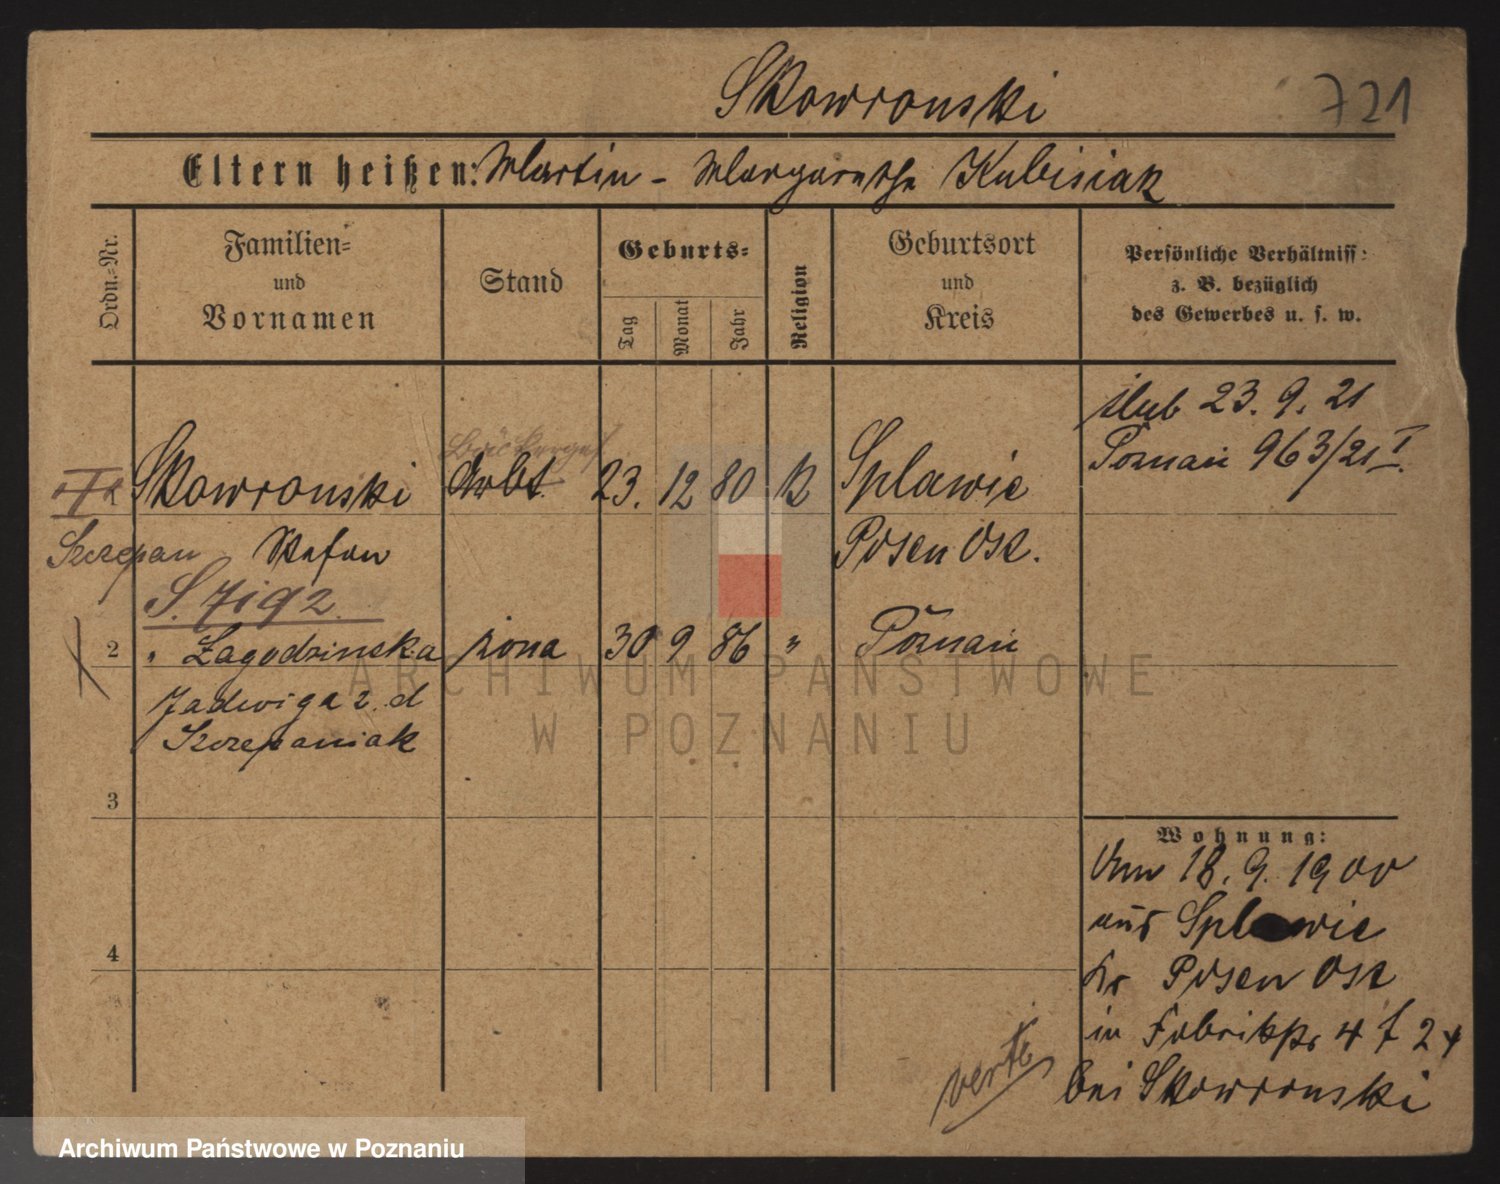 Skowronski 721
Eltern heißen: Martin - Margarethe Kubisiak
Ordn.=Nr.
Familien=
und
Vornamen
Stand
Geburts=
Tag
Monat
Jahr
Religion
Geburtsort
und
Kreis
Persönliche Verhältniss:
z. B. bezüglich
des Gewerbes u. s. w.
ślub 23. 9. 21
Poznań 963/21 I.
Skowronski Arbt. 23. 12 80 K Splawie
Szczepan Stefan Posen Ost.
2 Zagodzinska żona 30 9 86 " Poznań
Jadwiga 2. d
Szczepaniak
3
4
Wohnung:
Vom 18. 9. 1900
aus Splawie
Kr Posen Ost
in Fabrikstr 4
bei Skowronski
verte
ARCHIWUM PAŃSTWOWE
W POZNANIU
Archiwum Państwowe w Poznaniu